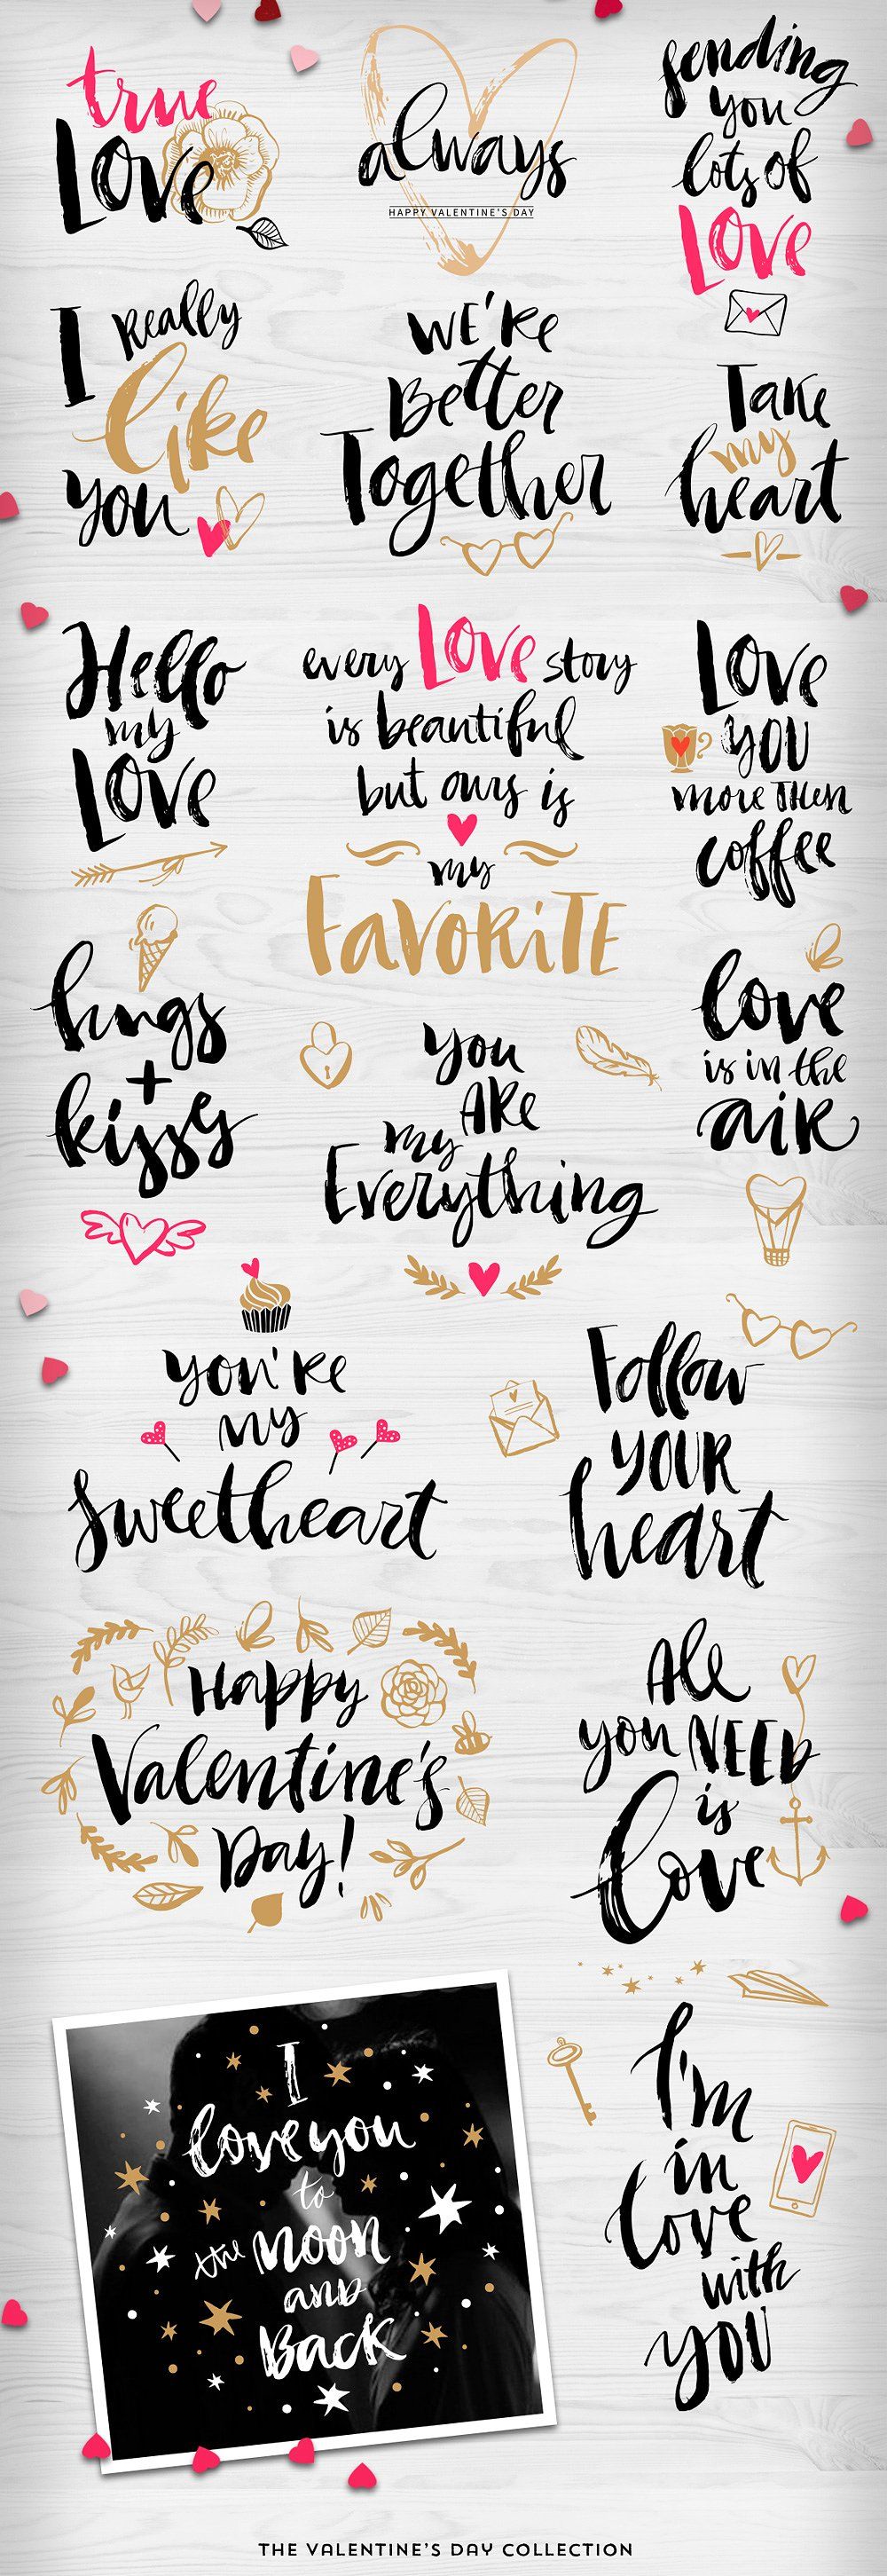 true
Love
always
HAPPY VALENTINE'S DAY
sending
you
lots of
Love
I Really
like
you
WE'RE
Better
Together
Take
my
heart
Hello
my
Love
every Love story
is beautiful
but ours is
my
FAVORITE
Love
YOU
more THEN
coffee
hugs
+
kissy
You
ARE
my
Everything
love
is in the
aiR
you're
my
Sweetheart
Follow
YOUR
heart
Happy
Valentine's
Day!
All
you NEED
is
love
I
love you
to
the MOON
AND
BACK
I'm
in
Love
with
YOU
THE VALENTINE'S DAY COLLECTION